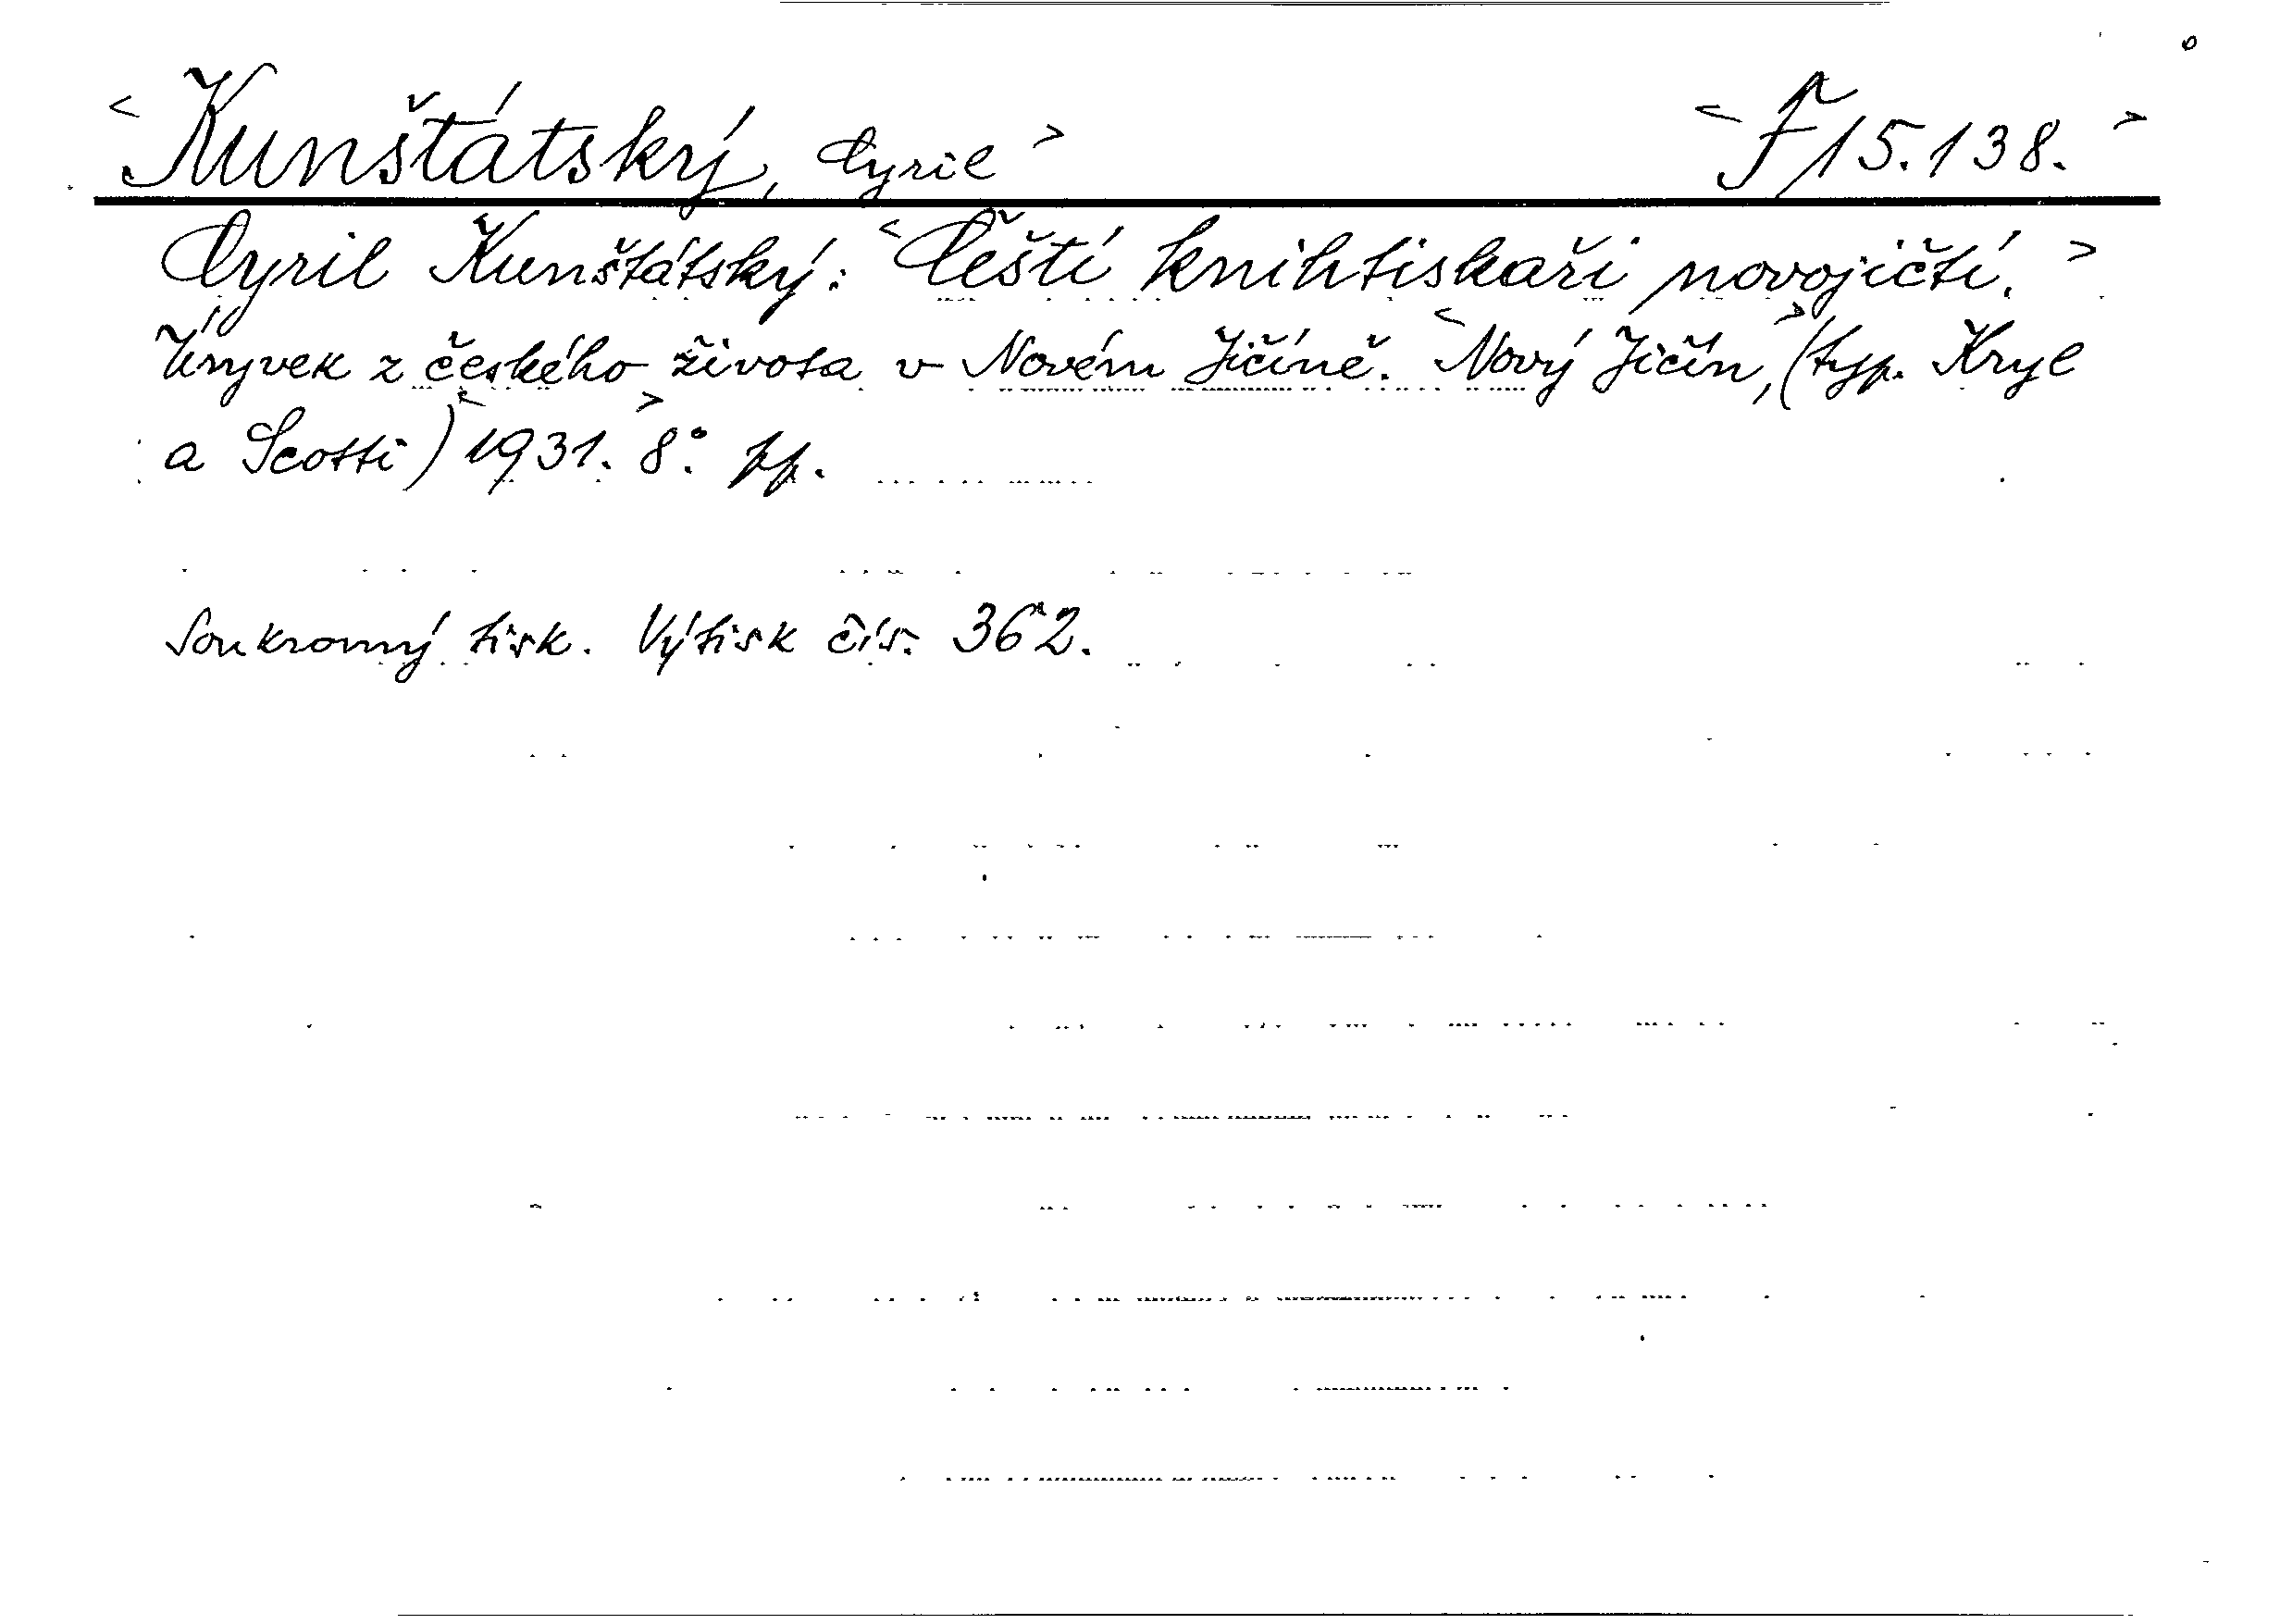 <Kunštátský, Cyril> <F 15.138.>
Cyril Kunštátský: <Čeští knihtiskaři novojičtí.>
Úryvek z českého života v Novém Jičíně. <Nový Jičín,> (typ. Kryl
a Scotti) <1931.> 8°. pp.
Soukromý tisk. Výtisk čís. 362.